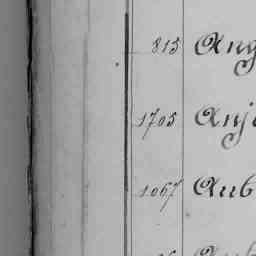 815 Ang
1705 Anj
1067 Aub